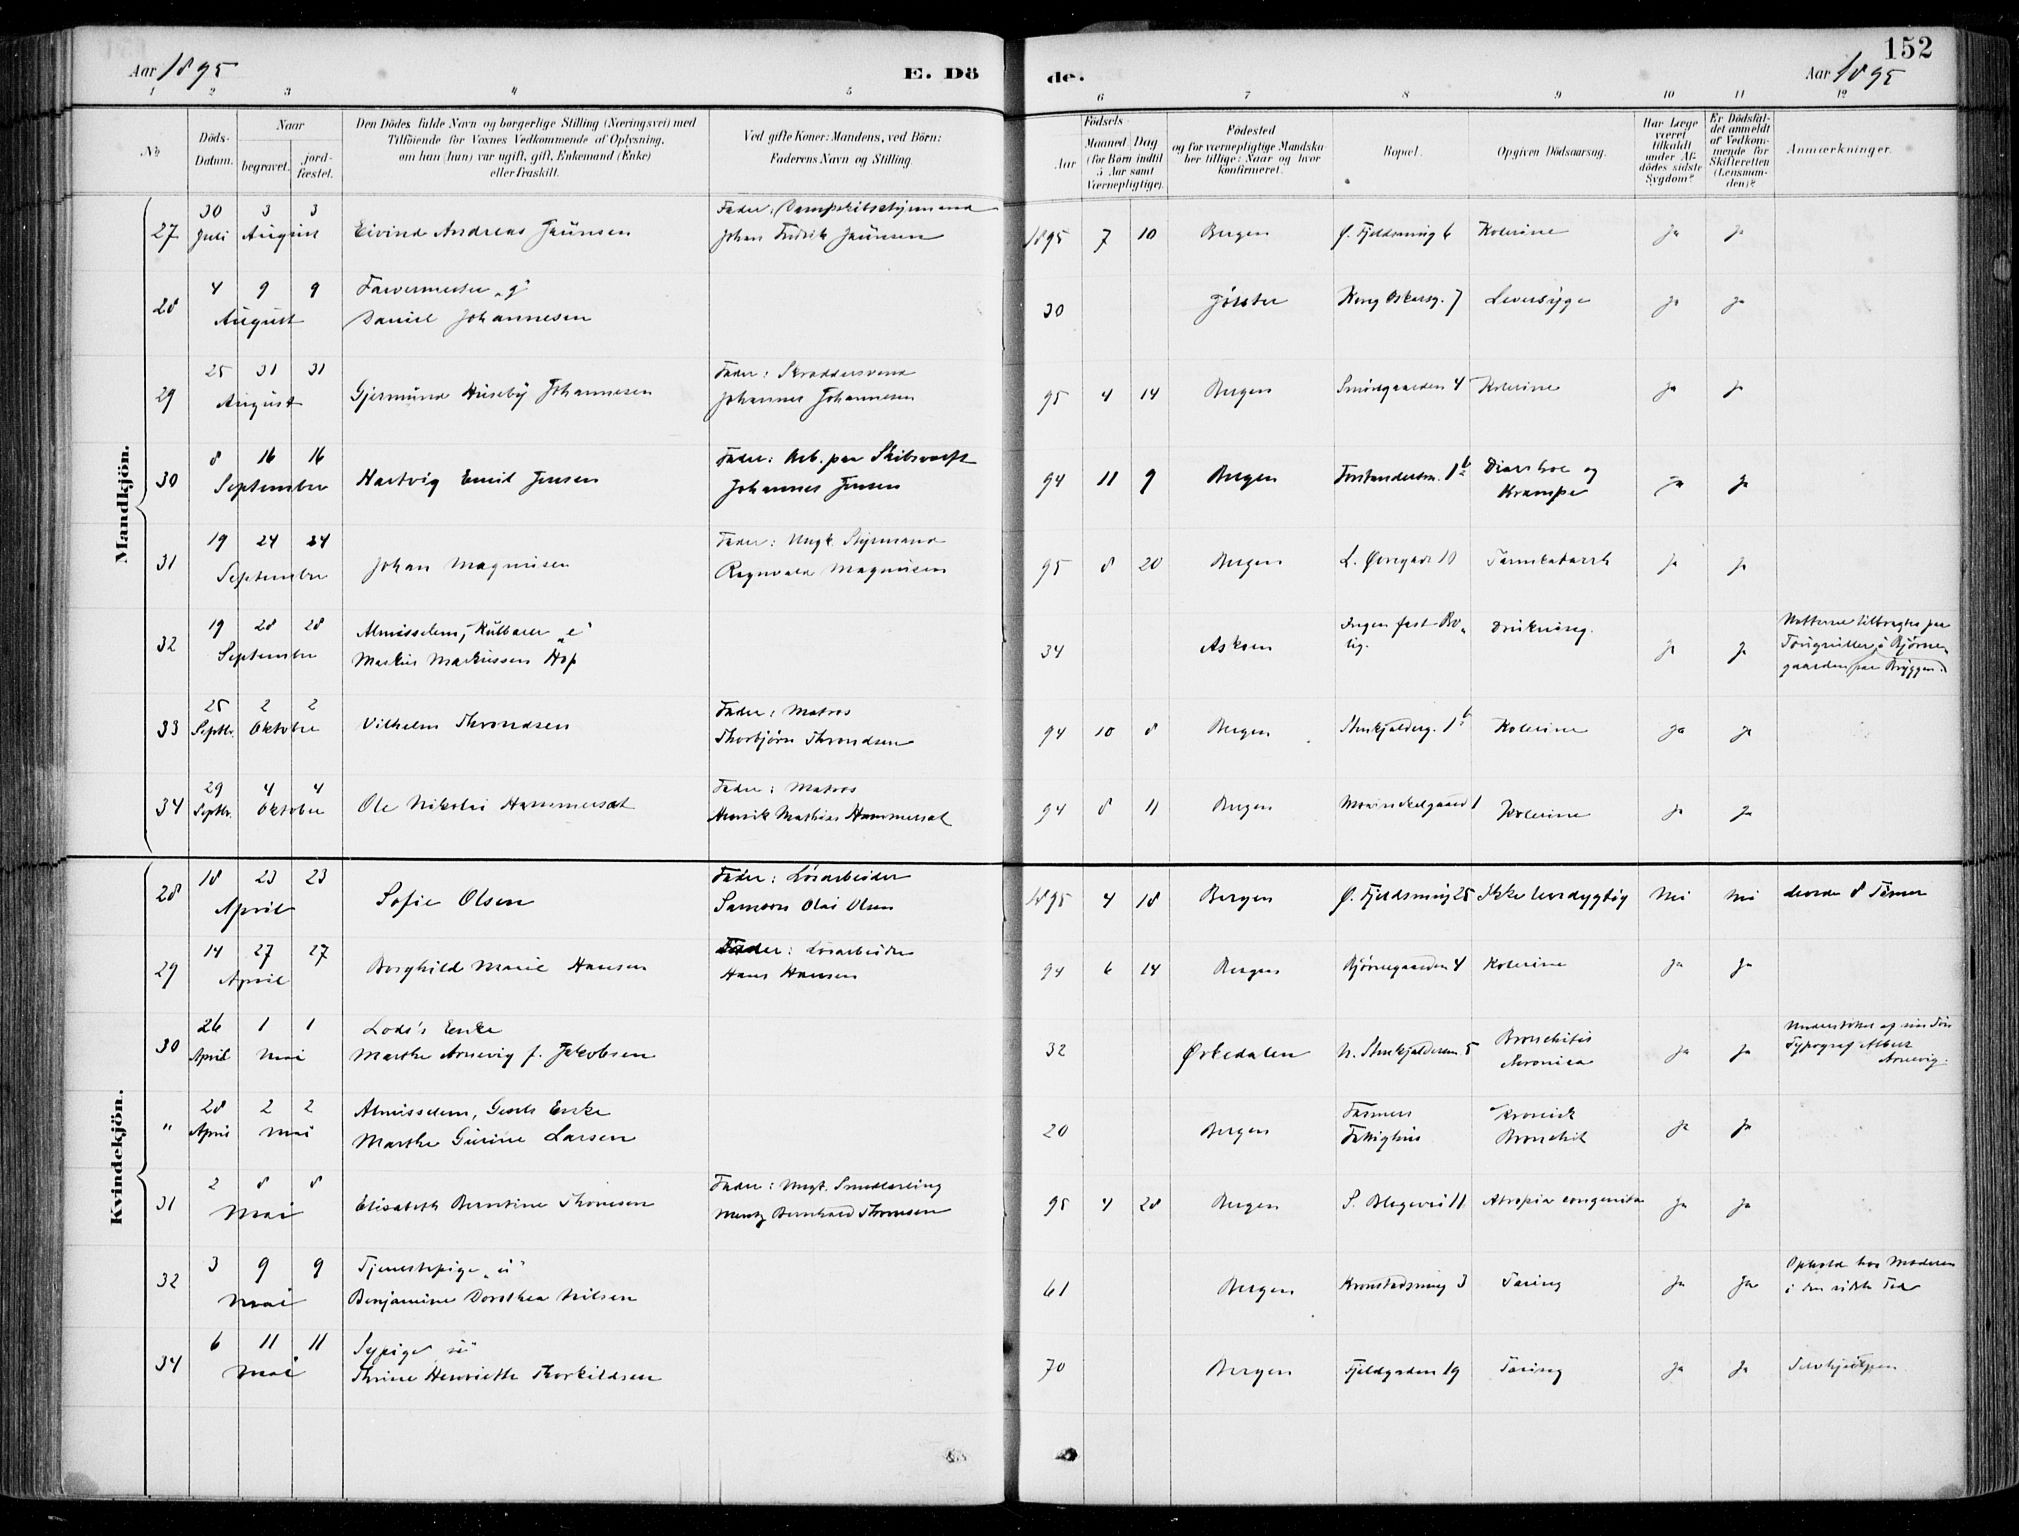 Aar 1895
E. Dö
de.
Aar 1895
152
1 2 3 4 5 6 7 8 9 10 11 12
No
Döds-
Datum.
Naar
begravet.
jord-
fæstet.
Den Dödes fulde Navn og borgerlige Stilling (Næringsvei) med
Tilföiende for Voxnes Vedkommende af Oplysning,
om han (hun) var ugift, gift, Enkemand (Enke)
eller fraskilt.
Ved gifte Koner: Mandens, ved Börn:
Faderens Navn og Stilling.
Födsels
Aar
Maaned
Dag
(for Börn indtil
5 Aar samt
Værnepligtige).
Födested
og for værnepligtige Mandska-
ber tillige: Naar og hvor
konfirmeret.
Bopæl.
Opgiven Dödsaarsag.
Har Læge
været
tilkaldt
under Af-
dödes sidste
Sygdom?
Er Dödsfal-
det anmeldt
af Vedkom-
mende for
Skifteretten
(Lensman-
den)?
Anmærkninger.
Mandkjön.
27 30 Juli 3 3 August Eivind Andreas Jaunsen
Fader: Dampskibsstyrmand
Johan Fredrik Jaunsen
1895 7 10 Bergen Ø. Fjeldsmug 6 Kolerine Ja Ja
28 4 9 9 August Farvermester „g"
Daniel Johannesen
30 Jølster Kong Oskarsg. 7 Leversyge Ja Ja
29 25 31 31 August Gjermund Huseby Johannesen
Fader: Skræddersvend
Johannes Johannesen
95 4 14 Bergen Smørsgaarden 4 Kolerine Ja Ja
30 8 16 16 September Hartvig Emil Jensen
Fader: Arb. paa Skibsværft
Johannes Jensen
94 11 9 Bergen Forstandersm. 1b Diarrhoe og
Krampe Ja Ja
31 19 24 24 September Johan Magnusen
Fader: Ungk. Styrmand
Ragnvald Magnusen
95 8 20 Bergen L. Øvregade 10 Tarmkatarrh Ja Ja
32 19 28 28 September Almisselem, Kulbærer „e"
Markus Markussen Hop
34 Askøen Ingen fast Bo-
lig. Ja Ja
Nætterne tilbragtes paa
i Bjørne-
gaarden paa Bryggen.
33 25 Septbr. 2 2 Oktober Vilhelm Throndsen
Fader: Matros
Thorbjørn Throndsen
94 10 8 Bergen Stenkjelderg. 1b Kolerine Ja Ja
34 29 Septbr. 4 4 Oktober Ole Nikolai Hammersat
Fader: Matros
Henrik Mathias Hammersat
94 8 11 Bergen Kolerine Ja Ja
Kvindekjön.
28 18 23 23 April Sofie Olsen
Fader: Løsarbeider
Samson Olai Olsen
1895 4 18 Bergen Ø. Fjeldsmug 25 Ikke levedygtig Nei Nei levede 8 Timer
29 14 27 27 April Borghild Marie Hansen
Fader: Løsarbeider
Hans Hansen
94 6 14 Bergen Bjørnegaarden 4 Kolerine Ja Ja
30 26 April 1 1 Mai Lods's Enke
Marthe Arnevig f. Jakobsen
32 Ørkedalen N. Stenkjeldersm. 5 Bronchitis
kronica Ja Ja
Understøttet af sin Søn
Typograf Albert
Arnevig.
" 28 April 2 2 Mai Almisselem, Gesels Enke
Marthe Gurine Larsen
20 Bergen
Fattighus
Kronisk
Bronchit Ja Ja
31 2 8 8 Mai Elisabeth Berntine Thomsen
Fader: Ungk. Smedlærling
Mentz Bernhard Thomsen
95 4 28 Bergen S. Blegevei 11 Atropia congenita Ja Ja
32 3 9 9 Mai Tjenestepige „u"
Benjamine Dorothea Nilsen
61 Bergen Kronstadsmug 3 Tæring Ja Ja
Ophold hos Moderen
i den sidste Tid
34 6 11 11 Mai Sypige „u"
Thrine Henriette Thorkildsen
70 Bergen Fjeldgaden 19 Tæring Ja Ja Selvhjulpen